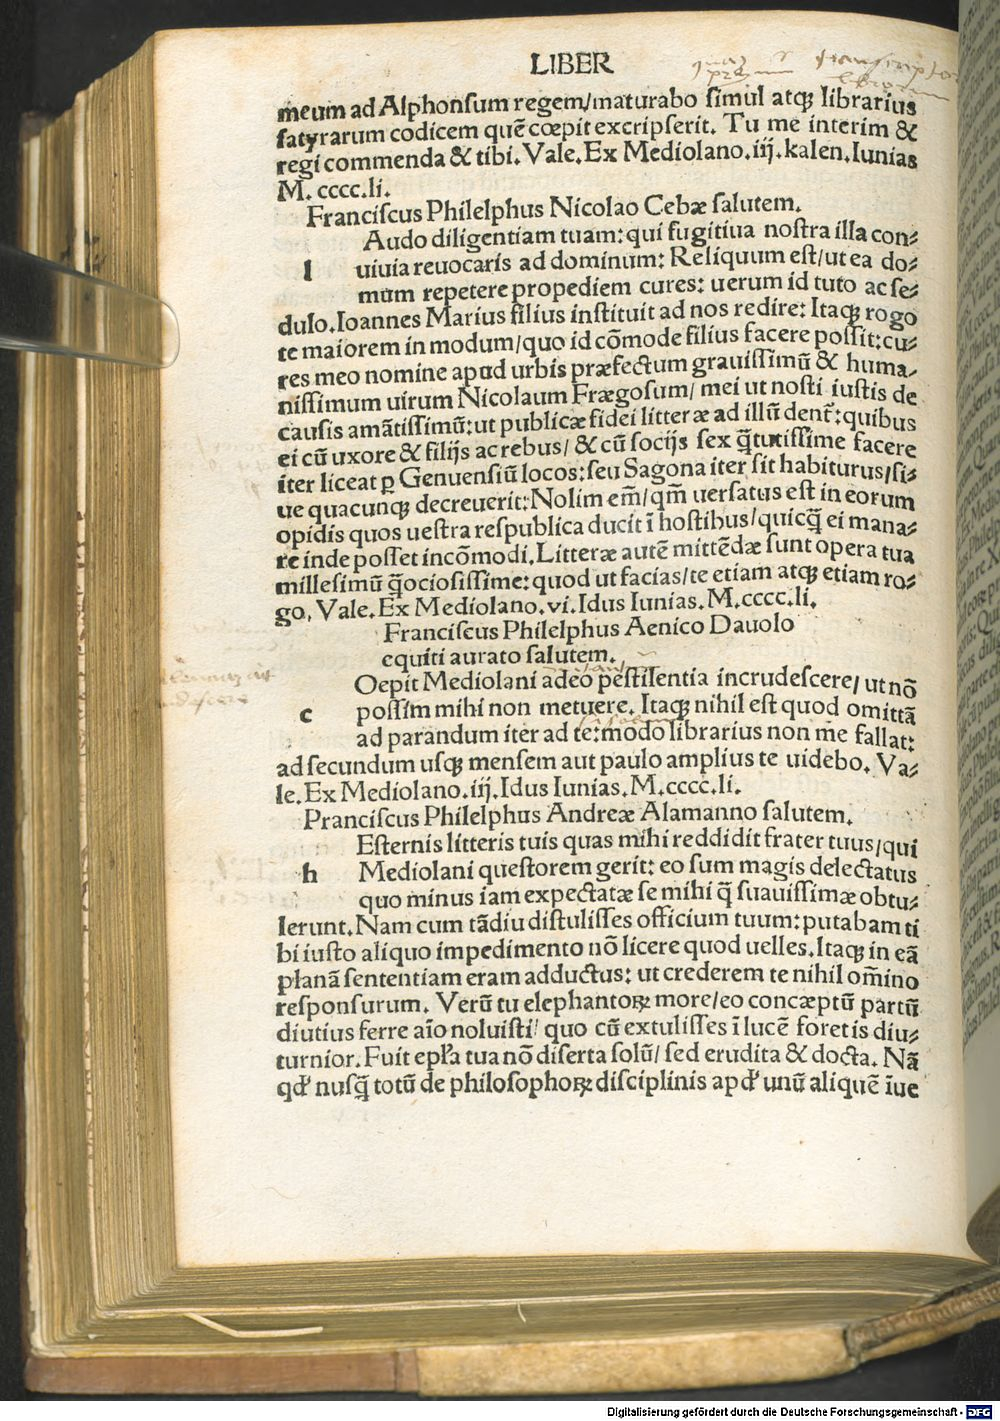 LIBER
meum ad Alphonsum regem/maturabo simul atqꝫ librarius
satyrarum codicem quē cœpit excripserit. Tu me interim &
regi commenda & tibi. Vale. Ex Mediolano.iij.kalen.Iunias
M.cccc.li.
Franciscus Philelphus Nicolao Cebæ salutem.
Audo diligentiam tuam: qui fugitiua nostra illa con⸗
l uiuia reuocaris ad dominum: Reliquum est/ut ea do⸗
mum repetere propediem cures: uerum id tuto ac se⸗
dulo.Ioannes Marius filius instituit ad nos redire: Itaqꝫ rogo
te maiorem in modum/quo id cōmode filius facere possit:cu⸗
res meo nomine apud urbis præfectum grauissimū & huma⸗
nissimum uirum Nicolaum Frægosum/ mei ut nosti iustis de
causis amātissimū: ut publicæ fidei litteræ ad illū dent̄: quibus
ei cū uxore & filijs ac rebus/ & cū socijs sex q̄tutissime facere
iter liceat ꝑ Genuensiū locos: seu Sagona iter sit habiturus/si⸗
ue quacunqꝫ decreuerit: Nolim em̄/qm̄ uersatus est in eorum
opidis quos uestra respublica ducit ī hostibus/quicq̄ ei mana⸗
re inde posset incōmodi. Litteræ autē mittēdæ sunt opera tua
millesimū q̄ociosissime: quod ut facias/te etiam atqꝫ etiam ro⸗
go. Vale. Ex Mediolano.vi.Idus Iunias. M.cccc.li.
Franciscus Philelphus Aenico Dauolo
equiti aurato salutem.
Oepit Mediolani adeo pestilentia incrudescere/ ut nō
c possim mihi non metuere. Itaqꝫ nihil est quod omittā
ad parandum iter ad te: modo librarius non me fallat:
ad secundum usqꝫ mensem aut paulo amplius te uidebo. Va⸗
le. Ex Mediolano.iij.Idus Iunias. M.cccc.li.
Pranciscus Philelphus Andreæ Alamanno salutem.
Esternis litteris tuis quas mihi reddidit frater tuus/qui
h Mediolani questorem gerit: eo sum magis delectatus
quo minus iam expectatæ se mihi q̄ suauissimæ obtu⸗
lerunt. Nam cum tādiu distulisses officium tuum: putabam ti
bi iusto aliquo impedimento nō licere quod uelles. Itaqꝫ in eā
planā sententiam eram adductus: ut crederem te nihil om̄ino
responsurum. Verū tu elephantoꝝ more/eo concæptū partū
diutius ferre aīo noluisti/ quo cū extulisses ī lucē foret is diu⸗
turnior. Fuit epl̄a tua nō diserta solū/ sed erudita & docta. Nā
qđ nusq̄ totū de philosophoꝝ disciplinis apđ unū aliquē īue
Digitalisierung gefördert durch die Deutsche Forschungsgemeinschaft - DFG